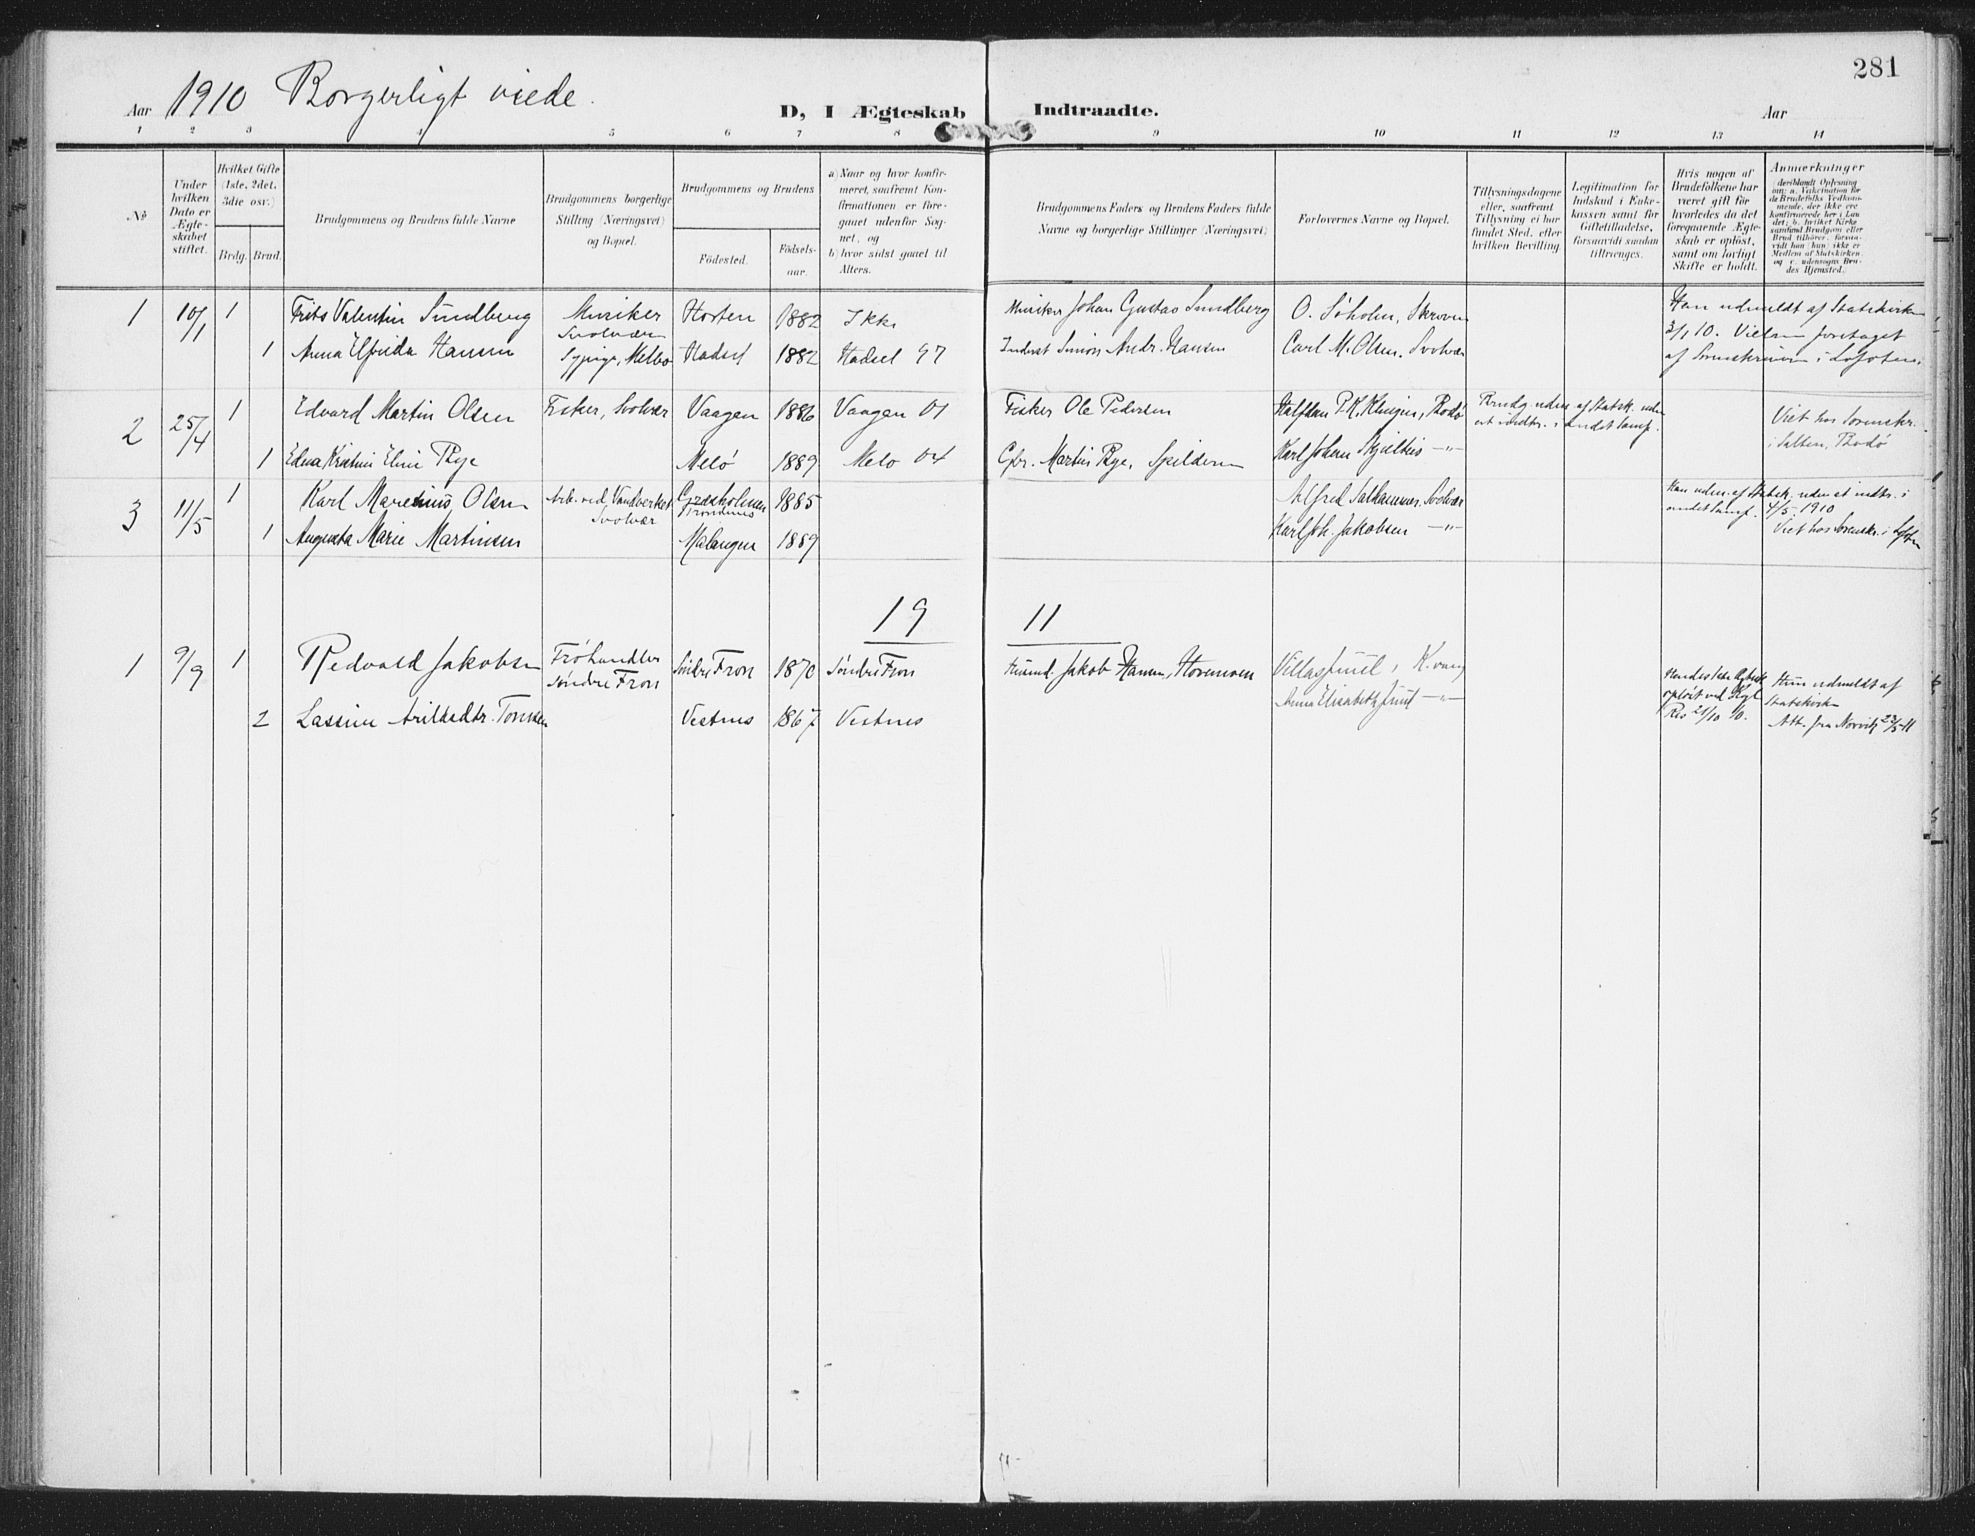 281
Aar 1910 Borgerligt viede.
D, I Ægteskab Indtraadte. Aar
1 2 3 4 5 6 7 8 9 10 11 12 13 14
No
Under hvilken Dato er Ægteskabet stiftet.
Hvilket Gifte (1ste, 2det, 3die osv.)
Brdg. Brud.
Brudgommens og Brudens fulde Navne
Brudgommens borgerlige Stilling (Næringsvei) og Bopæl.
Brudgommens og Brudens
Fødested. Fødselsaar.
a) Naar og hvor konfirmeret, saafremt Konfirmationen er foregaaet udenfor Sognet, og
b) hvor sidst gaaet til Alters.
Brudgommens Faders og Brudens Faders fulde Navne og borgerlige Stillinger (Næringsvei)
Forlovernes Navne og Bopæl.
Tillysningsdagene eller, saafremt Tillysning ei har fundet Sted, efter hvilken Bevilling
Legitimation for Indskud i Enkekassen samt for Giftetilladelse, forsaavidt saadan tiltrænges.
Hvis nogen af Brudefolkene har været gift før hvorledes da det foregaaende Ægteskab er opløst, samt om lovligt Skifte er holdt.
Anmærkninger
1 10/1 1 Frits Valentin Sundberg Musiker Svolvær Horten 1882 Ikke Musiker Johan Gustav Sundberg O. Søholm, Skroven Han udmeldt af Statskirken
1 Anna Elfrida Hansen Sypige, Melbo Hadsel 1882 Hadsel 97 Inderst Simon Andr. Hansen Carl M. Olsen, Svolvær 3/1 10. Vielsen foretaget
af Sorenskriveren i Lofoten.
2 25/4 1 Edvard Martin Olsen Fisker, Svolvær Vaagen 1886 Vaagen 01 Fisker Ole Pedersen Halfdan P. K. Bodø Brudg. udm. af Statsk. uden Viet hos Sorenskr.
i Salten, Bodø
1 Edna Kristine Eline Rye Melø 1889 Melø 04 Martin Rye, Karl Johan —"—
3 11/5 1 Karl Marenius Olsen Arb. ved Vandverket Svolvær Græsholmen Trondenes 1885 Alfred Svolvær Han udm. af Statsk. uden at indtr. i
andet samf. 4/5 1910
1 Augusta Marie Martinsen Malangen 1889 Karl Joh. Jakobsen —"— Viet hos Sorenskr. i Lofoten
19 11
1 9/9 1 Redvald Jakobsen Frøhandler Søndre Fron Søndre Fron 1870 Søndre Fron Jakob Hansen, K. vang Hun udmeldt af
Anna Elisabeth —"— Statskirken
2 Lassine Tomsen Vestnes 1867 Vestnes Res 21/10 10. Att. fra Narvik 23/5 11